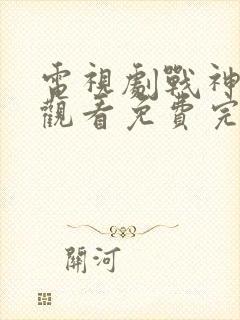 電視劇戰神
觀看免費完
關河